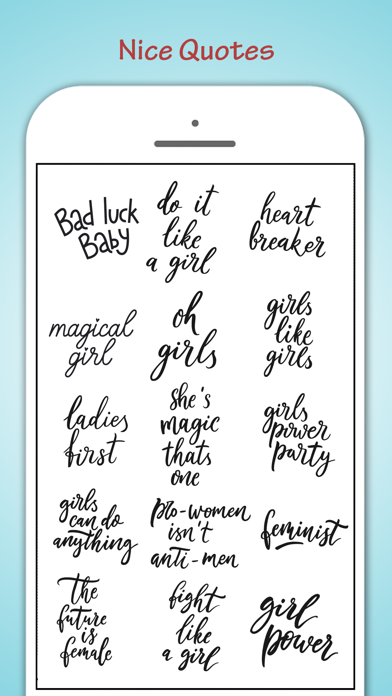 Nice Quotes
Bad luck
Baby
do it
like
a girl
heart
breaker
magical
girl
oh
girls
girls
like
girls
ladies
first
she's
magic
thats
one
girls
power
party
girls
can do
anything
pro-women
isn't
anti-men
feminist
the
future
is
female
fight
like
a girl
girl
power